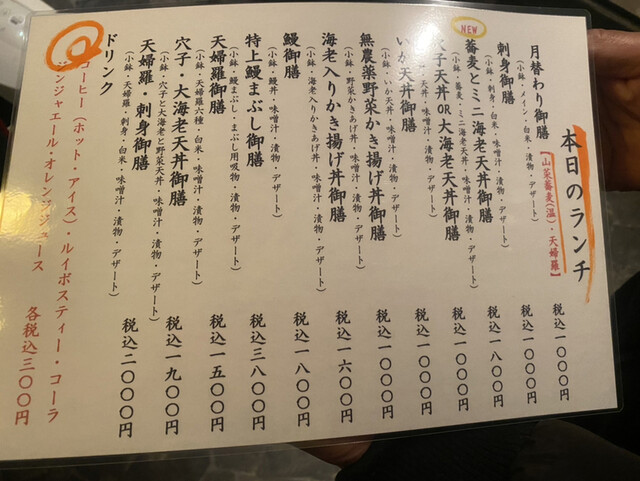 本日のランチ
【山菜蕎麦(温)・天婦羅】
月替わり御膳 税込一〇〇〇円
(小鉢・メイン・白米・漬物・デザート)
刺身御膳 税込一〇〇〇円
(小鉢・刺身・白米・味噌汁・漬物・デザート)
NEW
蕎麦とミニ海老天丼御膳 税込一八〇〇円
(小鉢・蕎麦・ミニ海老天丼・味噌汁・漬物・デザート)
穴子天丼OR大海老天丼御膳 税込一〇〇〇円
天丼・味噌汁・漬物・デザート)
いか天丼御膳 税込一〇〇〇円
(小鉢・いか天丼・味噌汁・漬物・デザート)
無農薬野菜かき揚げ丼御膳 税込一〇〇〇円
(小鉢・野菜かきあげ丼・味噌汁・漬物・デザート)
海老入りかき揚げ丼御膳 税込一六〇〇円
(小鉢・海老入りかきあげ丼・味噌汁・漬物・デザート)
鰻御膳 税込一八〇〇円
(小鉢・鰻丼・味噌汁・漬物・デザート)
特上鰻まぶし御膳 税込三八〇〇円
(小鉢・鰻まぶし・まぶし用吸物・漬物・デザート)
天婦羅御膳 税込一五〇〇円
(小鉢・天婦羅六種・白米・味噌汁・漬物・デザート)
穴子・大海老天丼御膳 税込一九〇〇円
(小鉢・穴子と大海老と野菜天丼・味噌汁・漬物・デザート)
天婦羅・刺身御膳 税込二〇〇〇円
(小鉢・天婦羅・刺身・白米・味噌汁・漬物・デザート)
ドリンク
コーヒー(ホット・アイス)・ルイボスティー・コーラ
ジンジャエール・オレンジジュース 各税込三〇〇円